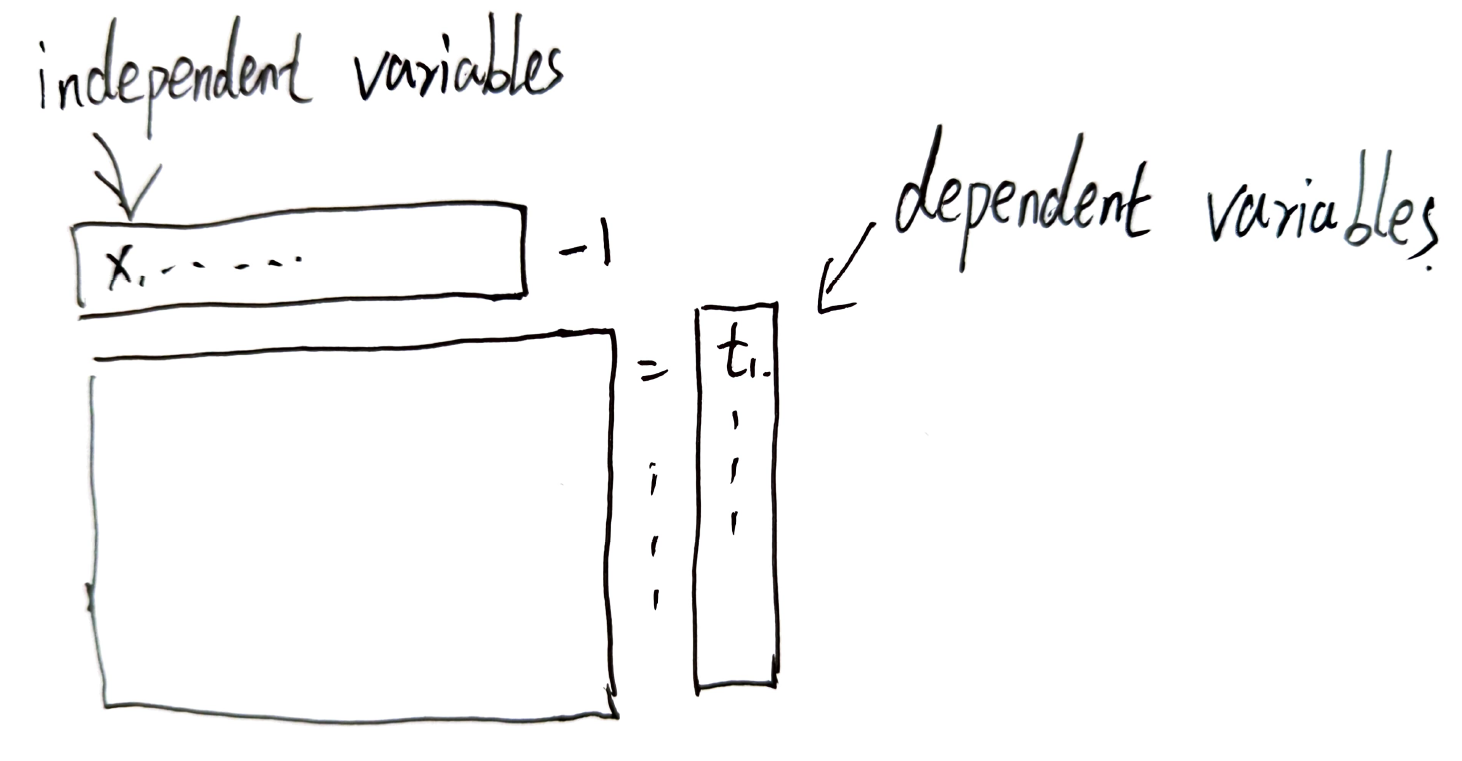 independent variables
dependent variables.
x, ... ... -1
= t1.